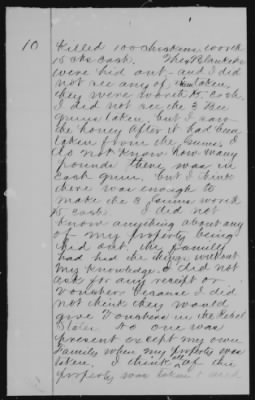 10 Killed 100 chickens worth
15 cts each. The Blankets
were hid out - and I did
not see any of them taken,
they were worth $5 Each.
I did not see the 3 Bee
gums taken, but I saw
the honey after it had been
taken from the Gums. I
do not know how many
pounds there was in
Each gum, but I think
there was enough to
make the 3 Gums worth
$5 Each. I did not
know anything about any
of my property being
hid out, the family
had hid the things without
my knowledge. I did not
ask for any receipt or
Voucher because I did
not think they would
give Vouchers in the Rebel
States. No one was
present except my own
Family when my property was
taken. I think all of this
property was taken & used